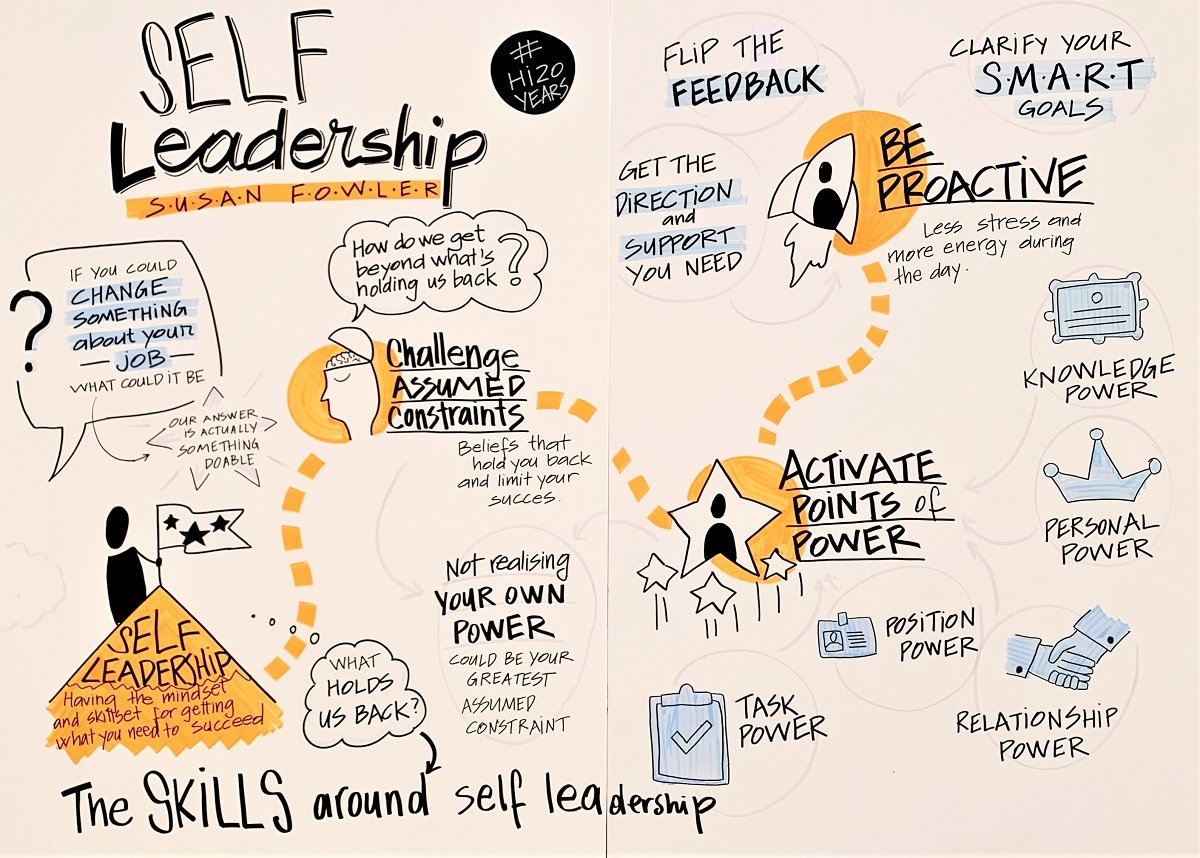 SELF
Leadership
S·U·S·A·N F·O·W·L·E·R
#
Hi20
YEARS
?
IF YOU COULD
CHANGE
SOMETHiNG
about your
JOB
WHAT COULD iT BE
OUR ANSWER
iS ACTUALLY
SOMETHiNG
DOABLE
How do we get
beyond what's
holding us back
?
Challenge
ASSUMED
Constraints
Beliefs that
hold you back
and limit your
succes.
SELF
LEADERSHiP
Having the mindset
and skillset for getting
what you need to succeed
WHAT
HOLDS
US BACK?
Not realising
YOUR OWN
POWER
COULD BE YOUR
GREATEST
ASSUMED
CONSTRAINT
The SKiLLS around self leadership
FLiP THE
FEEDBACK
CLARiFY YOUR
S·M·A·R·T
GOALS
GET THE
DiRECTiON
and
SUPPORT
YOU NEED
BE
PROACTiVE
Less stress and
more energy during
the day.
ACTiVATE
POiNTS of
POWER
KNOWLEDGE
POWER
PERSONAL
POWER
POSiTiON
POWER
RELATiONSHiP
POWER
TASK
POWER